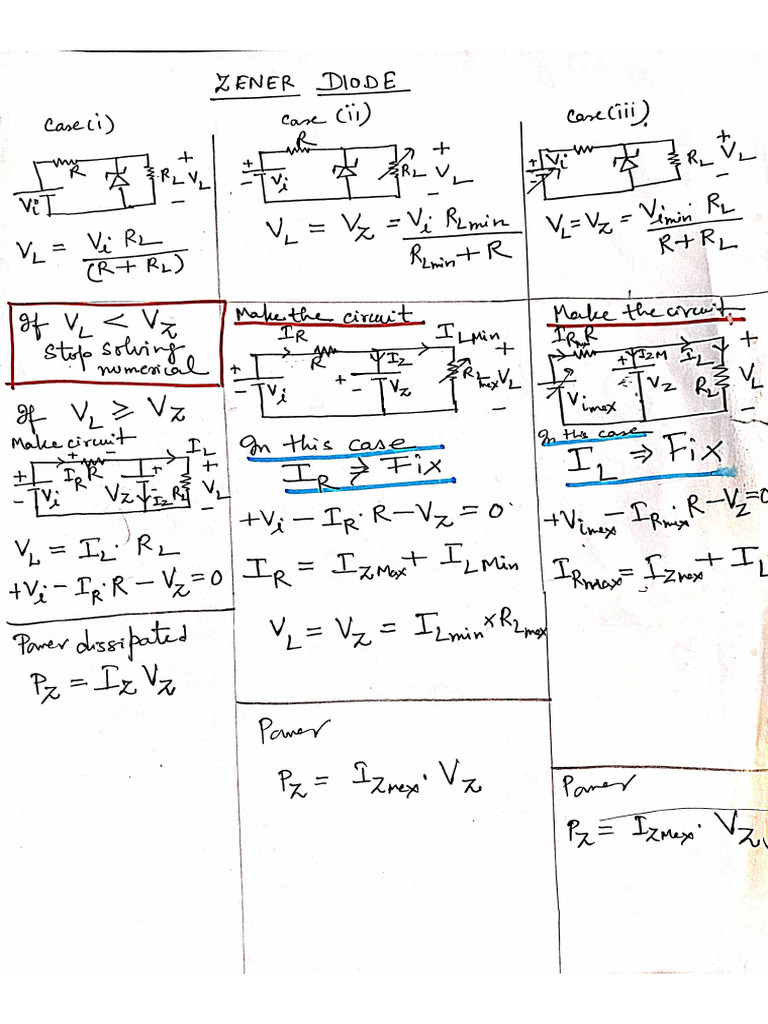 ZENER DIODE
Case (i)
R
Vi
RL
+
VL
-
VL = Vi RL / (R + RL)
If VL < VZ
Stop solving
numerical
If VL ≥ VZ
Make circuit
+ - IL
+ IR R + +
- Vi VZ - IZ RL VL
-
VL = IL. RL
+Vi - IR.R - VZ = 0
Power dissipated
PZ = IZ VZ
case (ii)
R
+
-
Vi
RL
+
VL
-
VL = VZ = Vi RLmin / RLmin + R
Make the circuit
IR ILMin
R IZ +
+ + RLmax VL
- Vi - VZ
-
In this case
IR ⇒ Fix
+Vi - IR. R - VZ = 0
IR = IZMax + ILMin
VL = VZ = ILmin × RLmax
Power
PZ = IZmex. VZ
Case (iii).
+
-
Vi
RL
+
VL
-
VL = VZ = Vimin. RL / R + RL
Make the circuit
R IZM IL +
+ + RL VL
- Vimex - VZ
-
In this case
IL ⇒ Fix
+Vimex - IRmax. R - VZ = 0
IRmax = IZmex + IL
Power
PZ = IZMex. VZ